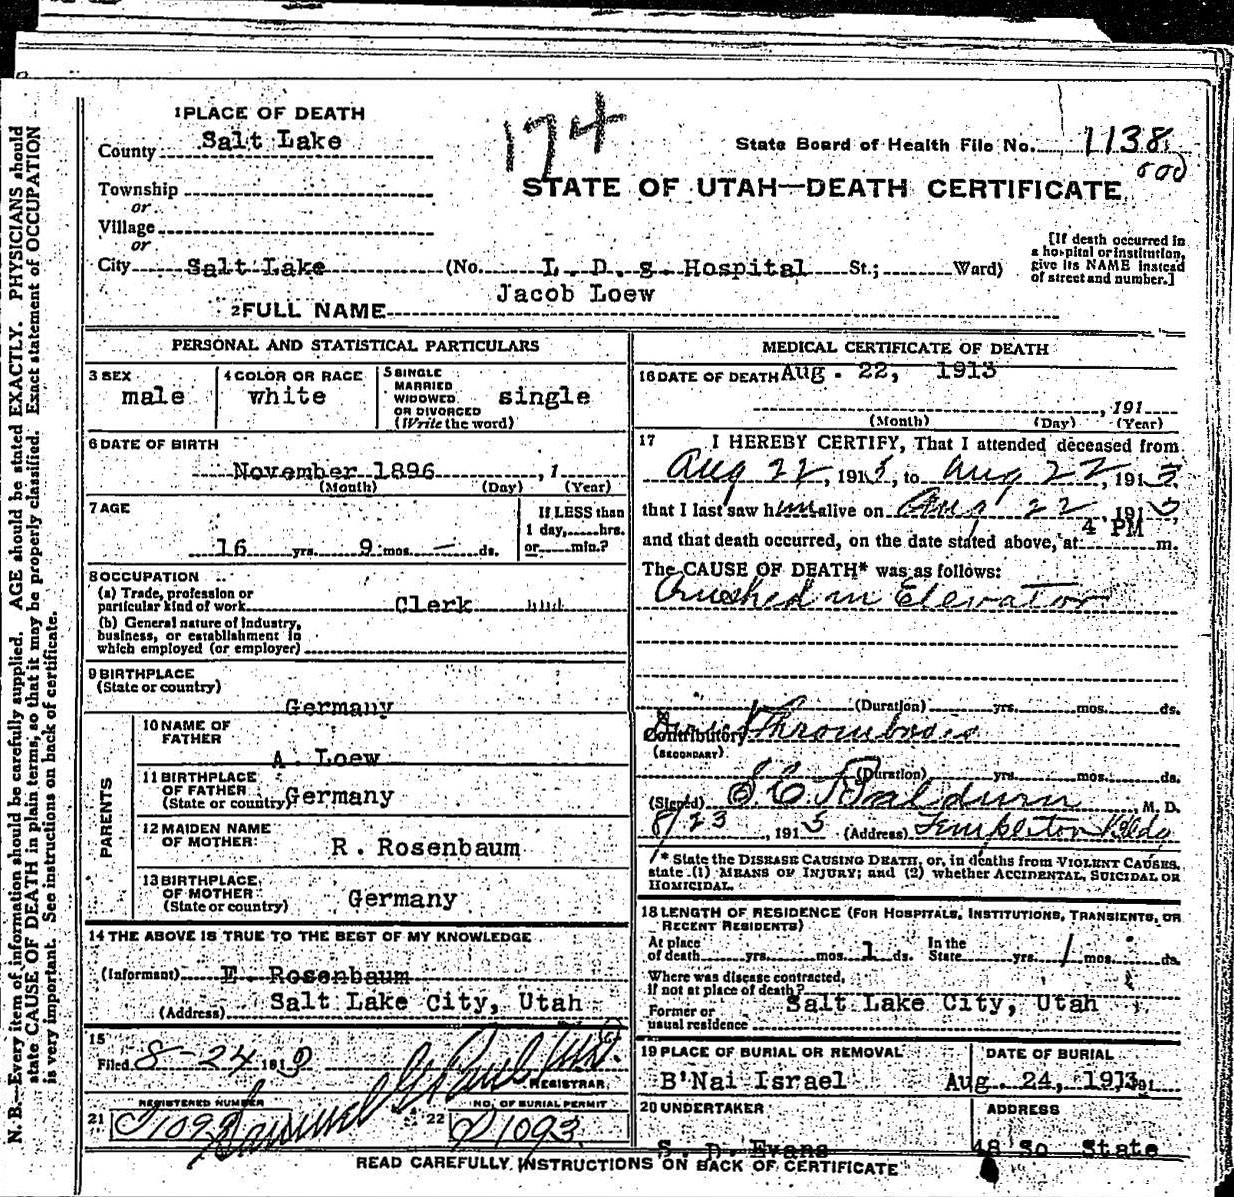 1 PLACE OF DEATH
174
County Salt Lake
State Board of Health File No. 1138
Township
STATE OF UTAH—DEATH CERTIFICATE
or
Village
or
City Salt Lake (No. L. D. S. Hospital St.; Ward)
[If death occurred in
a hospital or institution,
give its NAME instead
of street and number.]
2 FULL NAME Jacob Loew
PERSONAL AND STATISTICAL PARTICULARS
3 SEX
male
4 COLOR OR RACE
white
5 SINGLE
MARRIED
WIDOWED
OR DIVORCED
(Write the word)
single
6 DATE OF BIRTH
November 1896, 1
(Month) (Day) (Year)
7 AGE
16 yrs. 9 mos. — ds.
If LESS than
1 day, hrs.
or min.?
8 OCCUPATION
(a) Trade, profession or
particular kind of work Clerk
(b) General nature of industry,
business, or establishment in
which employed (or employer)
9 BIRTHPLACE
(State or country)
Germany
PARENTS
10 NAME OF
FATHER
A. Loew
11 BIRTHPLACE
OF FATHER
(State or country) Germany
12 MAIDEN NAME
OF MOTHER
R. Rosenbaum
13 BIRTHPLACE
OF MOTHER
(State or country) Germany
14 THE ABOVE IS TRUE TO THE BEST OF MY KNOWLEDGE
(Informant) E. Rosenbaum
(Address) Salt Lake City, Utah
15
Filed 8-24 1913
REGISTRAR
REGISTERED NUMBER
21
NO. OF BURIAL PERMIT
22 1093
MEDICAL CERTIFICATE OF DEATH
16 DATE OF DEATH Aug. 22, 1913
, 191
(Month) (Day) (Year)
17 I HEREBY CERTIFY, That I attended deceased from
Aug 22, 1913, to Aug 22, 1913
that I last saw him alive on Aug 22, 1913,
and that death occurred, on the date stated above, at 4 PM m.
The CAUSE OF DEATH* was as follows:
Crushed in Elevator
(Duration) yrs. mos. ds.
Contributory Thrombosis
(SECONDARY)
(Duration) yrs. mos. ds.
(Signed) Baldwin, M. D.
8/23, 1913 (Address) Templeton Bldg
* State the DISEASE CAUSING DEATH, or, in deaths from VIOLENT CAUSES,
state (1) MEANS OF INJURY; and (2) whether ACCIDENTAL, SUICIDAL OR
HOMICIDAL.
18 LENGTH OF RESIDENCE (FOR HOSPITALS, INSTITUTIONS, TRANSIENTS, OR
RECENT RESIDENTS)
At place
of death yrs. mos. 1 ds.
In the
State yrs. 1 mos. ds.
Where was disease contracted,
if not at place of death?
Salt Lake City, Utah
Former or
usual residence
19 PLACE OF BURIAL OR REMOVAL
B'Nai Israel
DATE OF BURIAL
Aug. 24, 1913 191
20 UNDERTAKER
S. D. Evans
ADDRESS
48 So State
READ CAREFULLY INSTRUCTIONS ON BACK OF CERTIFICATE
N. B.—Every item of information should be carefully supplied. AGE should be stated EXACTLY. PHYSICIANS should
state CAUSE OF DEATH in plain terms, so that it may be properly classified. Exact statement of OCCUPATION
is very important. See instructions on back of certificate.